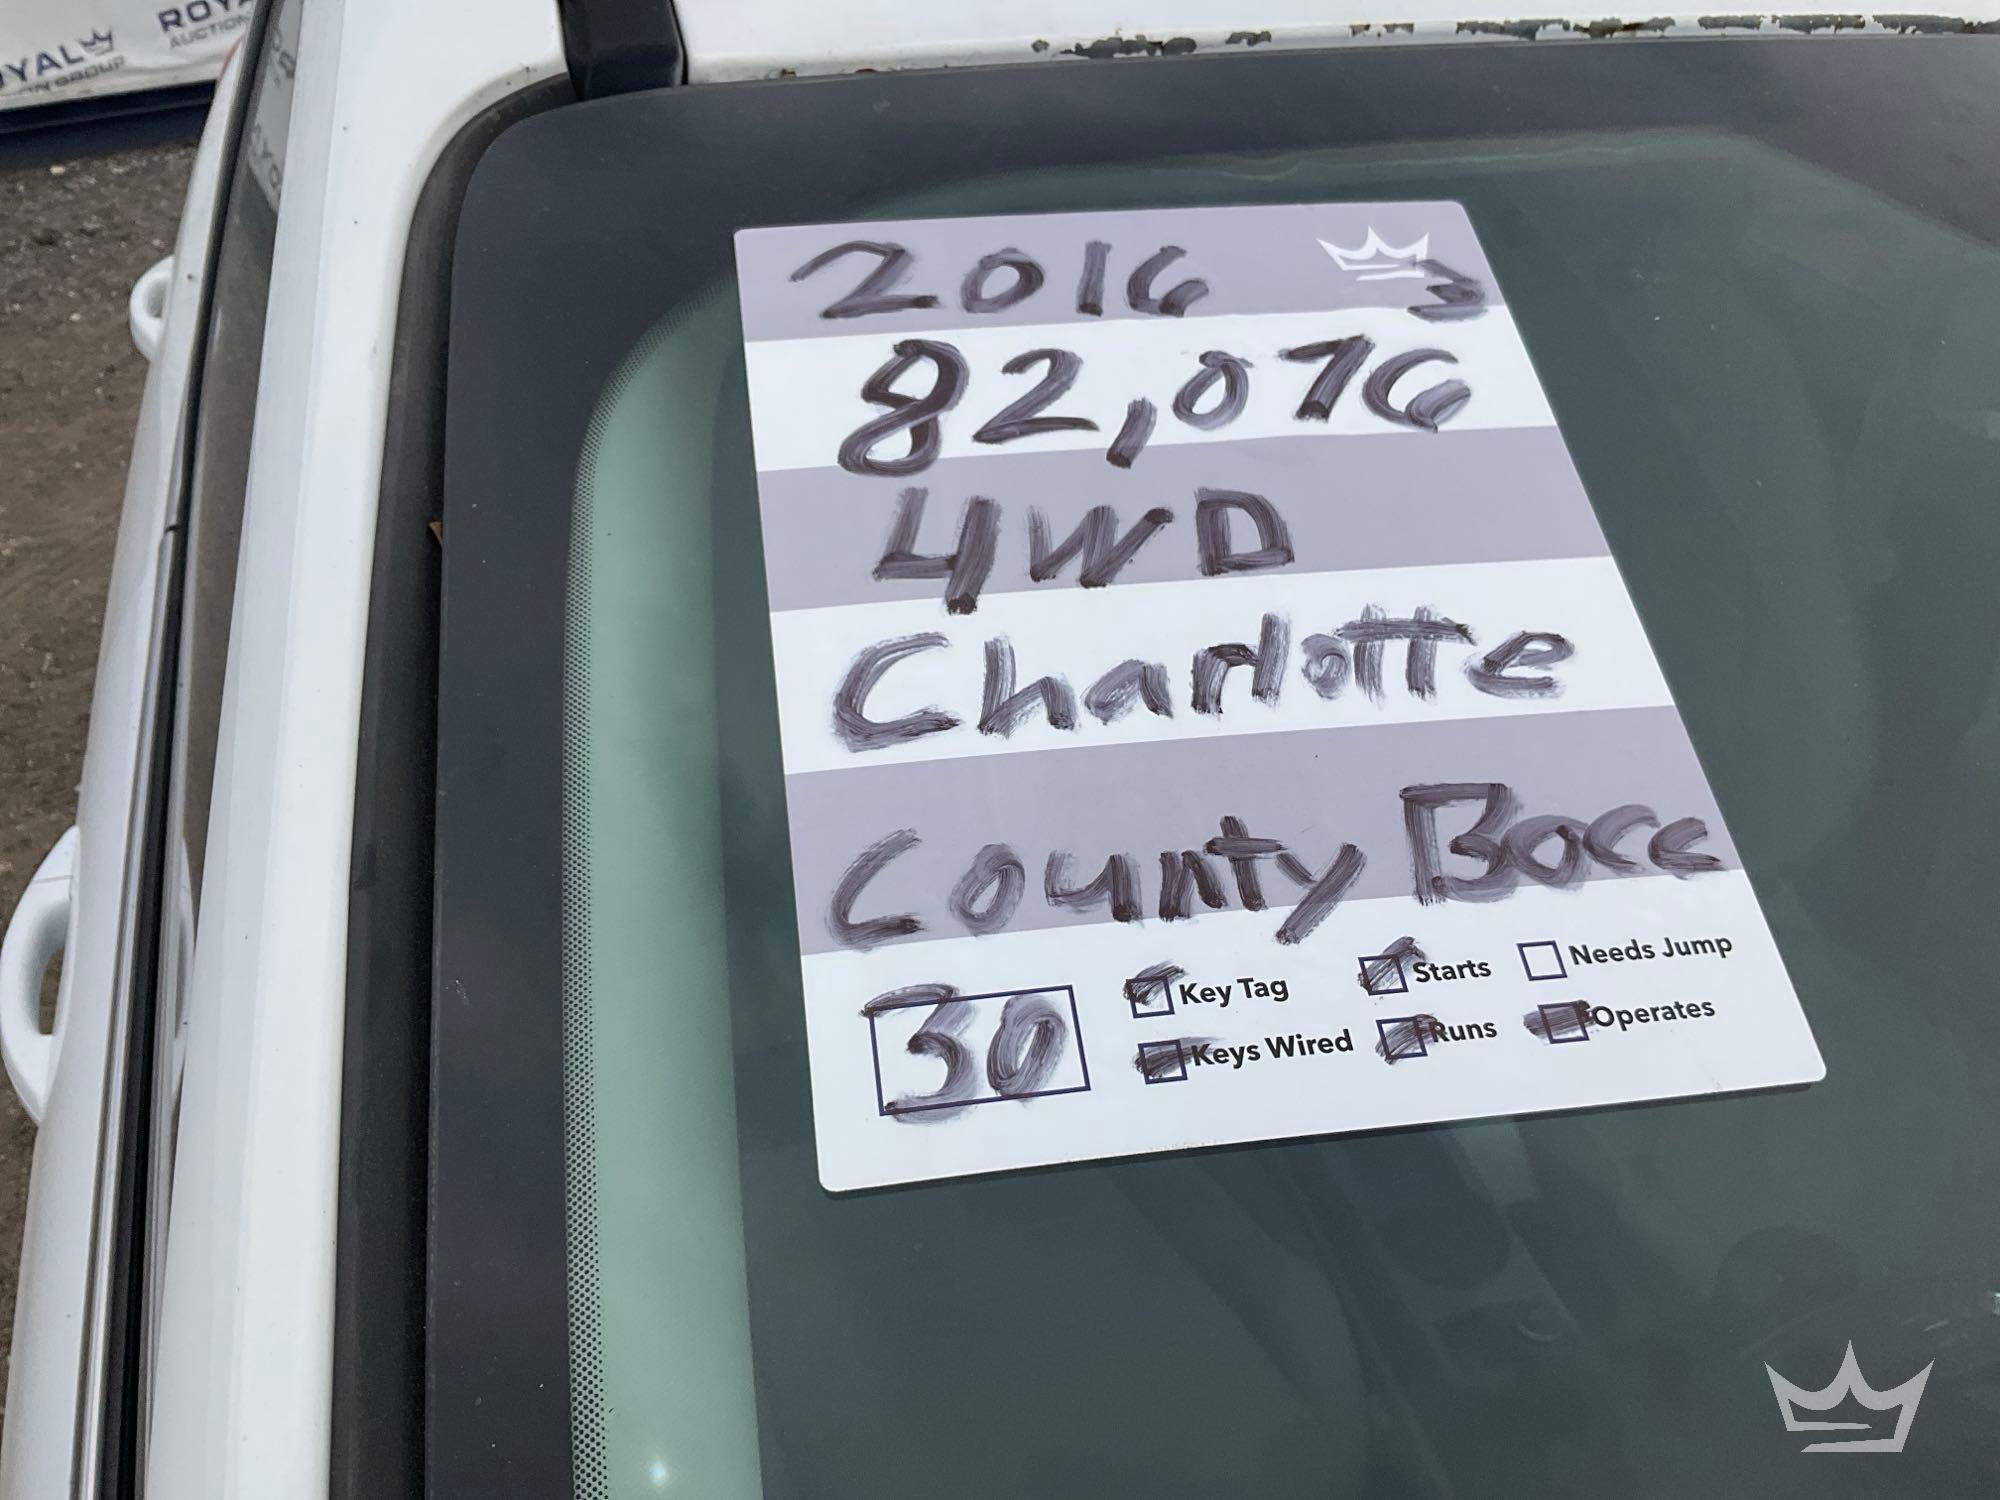 ROYAL
AUCTION GROUP
ROYA
AUCTION
2016 3
82,076
4WD
Charlotte
County Bocc
30
Key Tag
Starts
Needs Jump
Keys Wired
Runs
Operates